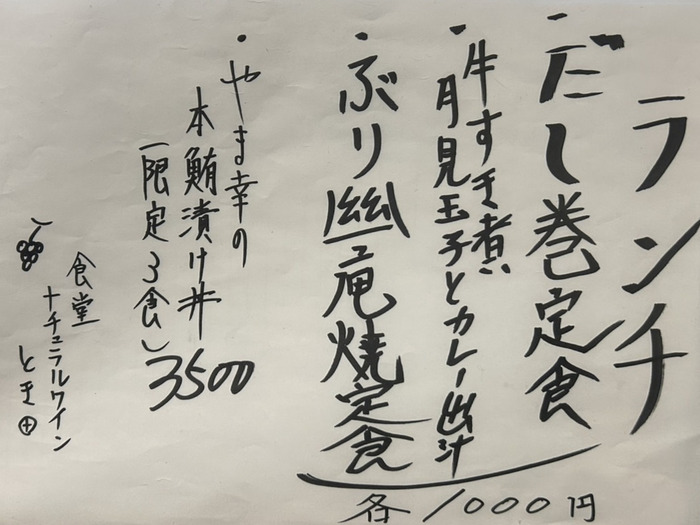 ランチ
・だし巻定食
・牛すき煮
月見玉子とカレー出汁
・ぶり幽庵焼定食
各1000円
・やま幸の
本鮪漬け丼
(限定3食)
3500
食堂
ナチュラルワイン
とき